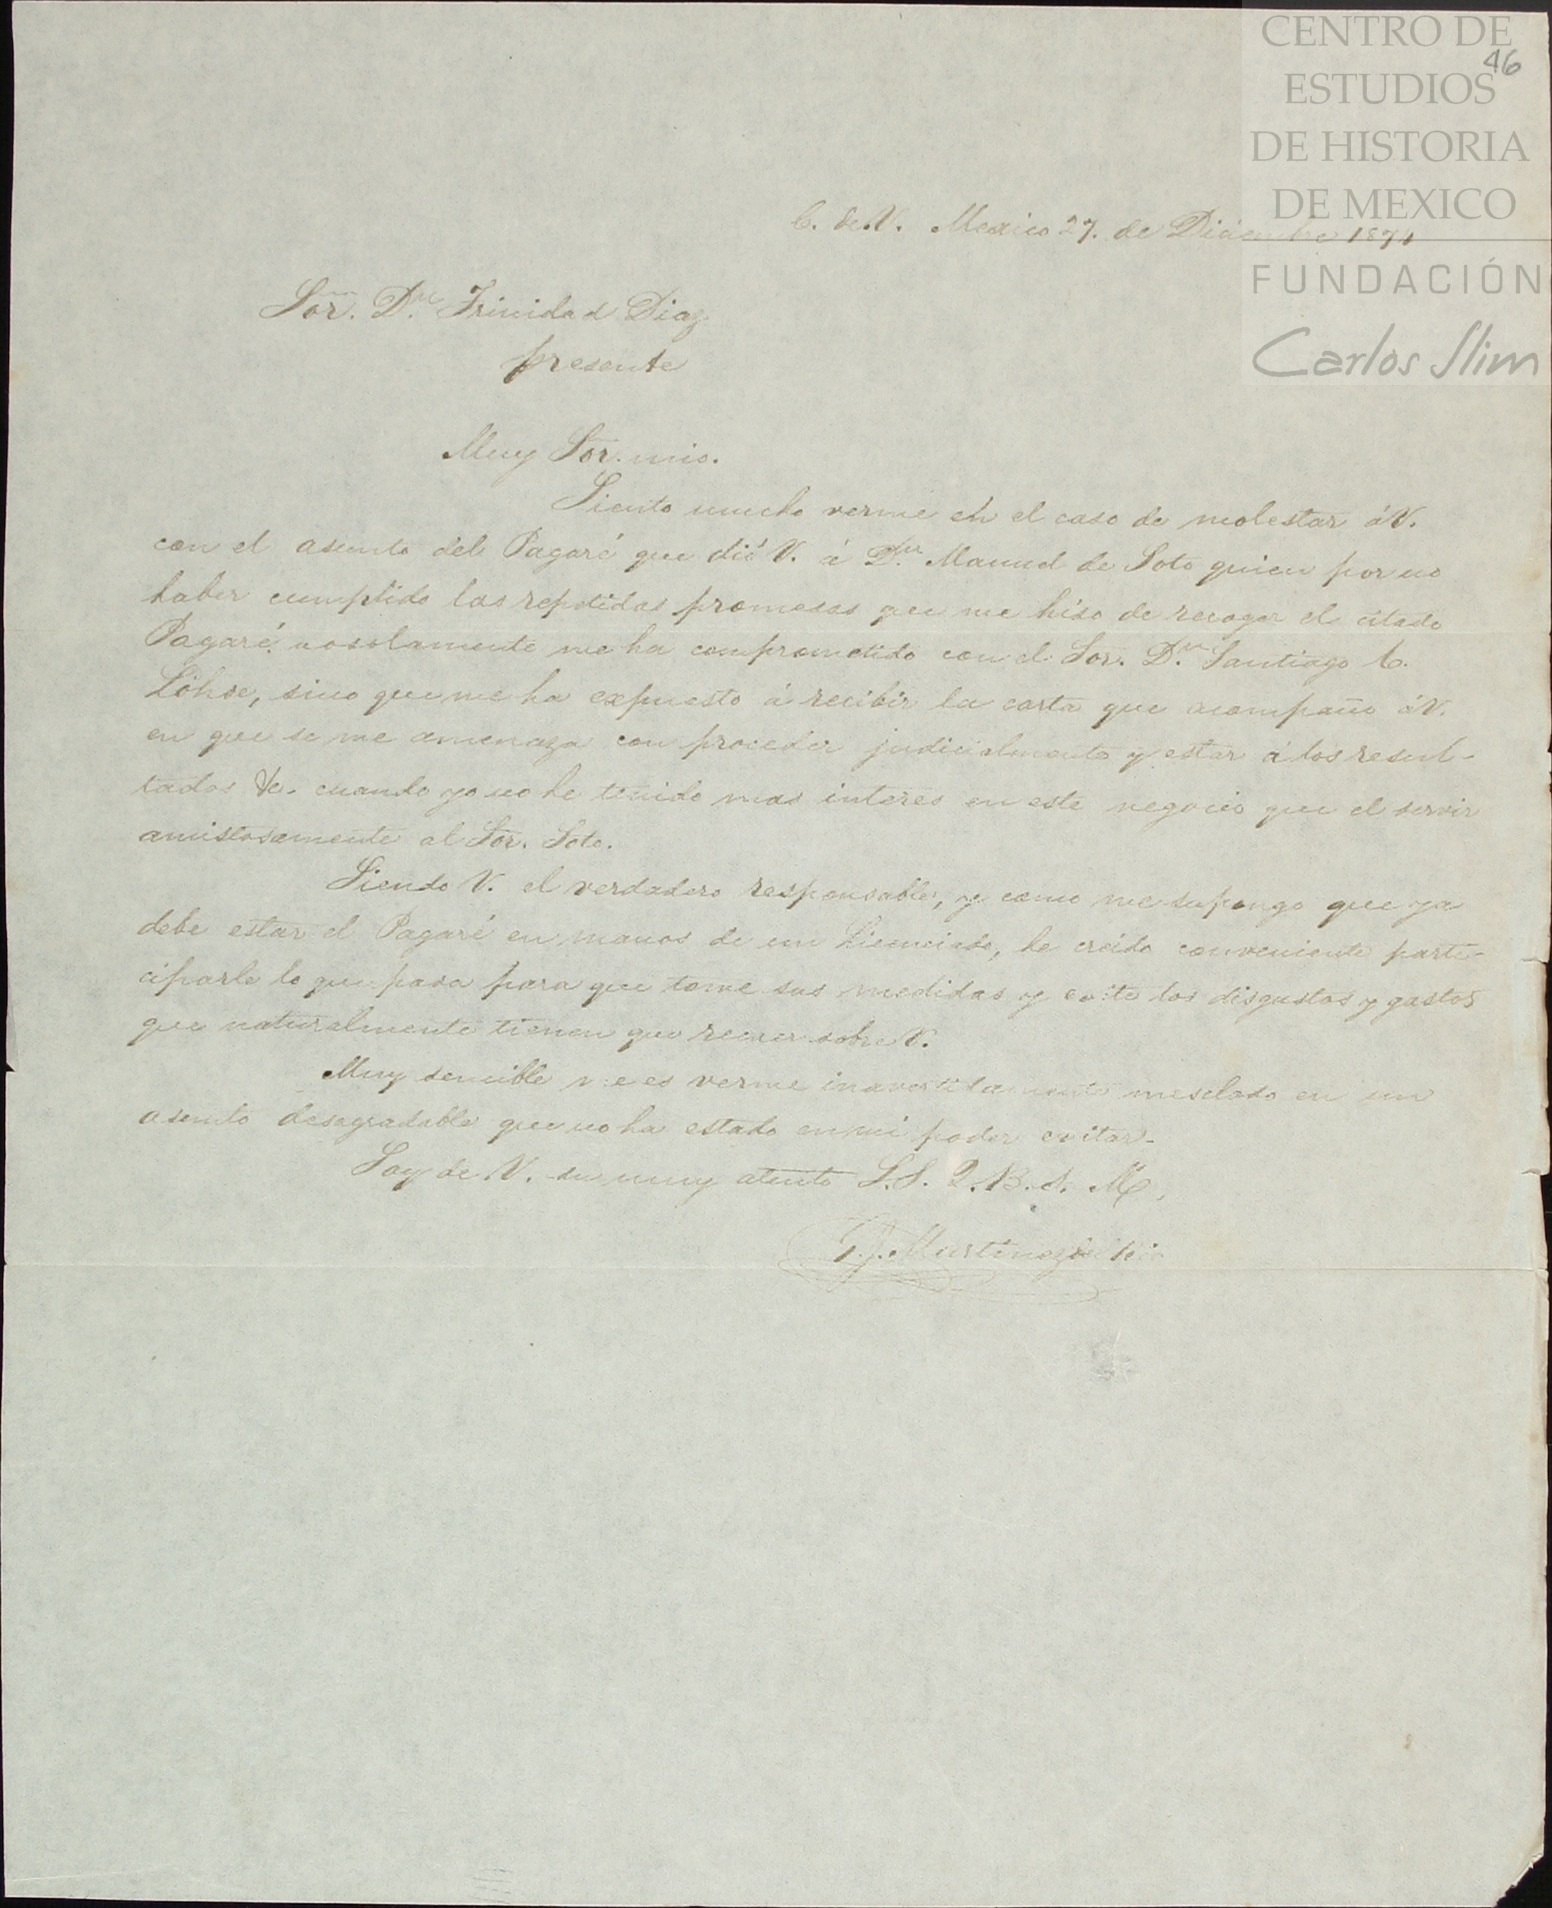 CENTRO DE
ESTUDIOS
DE HISTORIA
DE MEXICO
FUNDACIÓN
Carlos Slim
46
C. de V. Mexico 27. de Diciembre 1874
Sor. Dn. Trinidad Diaz
presente
Muy Sor. mio.
Siento mucho verme en el caso de molestar á V.
con el asunto del Pagaré que dió V. á Dn. Manuel de Soto quien por no
haber cumplido las repetidas promesas que me hiso de recoger el citado
Pagaré, nosolamente me ha comprometido con el Sor. Dn. Santiago C.
Löhse, sino que me ha expuesto á recibir la carta que acompaño á V.
en que se me amenaza con proceder judicialmente y estar á los resul-
tados &c. cuando yo no he tenido mas interes en este negocio que el servir
amistosamente al Sor. Soto.
Siendo V. el verdadero responsable, y como me supongo que ya
debe estar el Pagaré en manos de un Licenciado, he creido conveniente parti-
ciparle lo que pasa para que tome sus medidas y evite los disgustos y gastos
que naturalmente tienen que recaer sobre V.
Muy sencible me es verme inavertidamente mesclado en un
asunto desagradable que no ha estado en mi poder evitar.
Soy de V. su muy atento S.S. Q.B.S.M.
Martinez del Rio